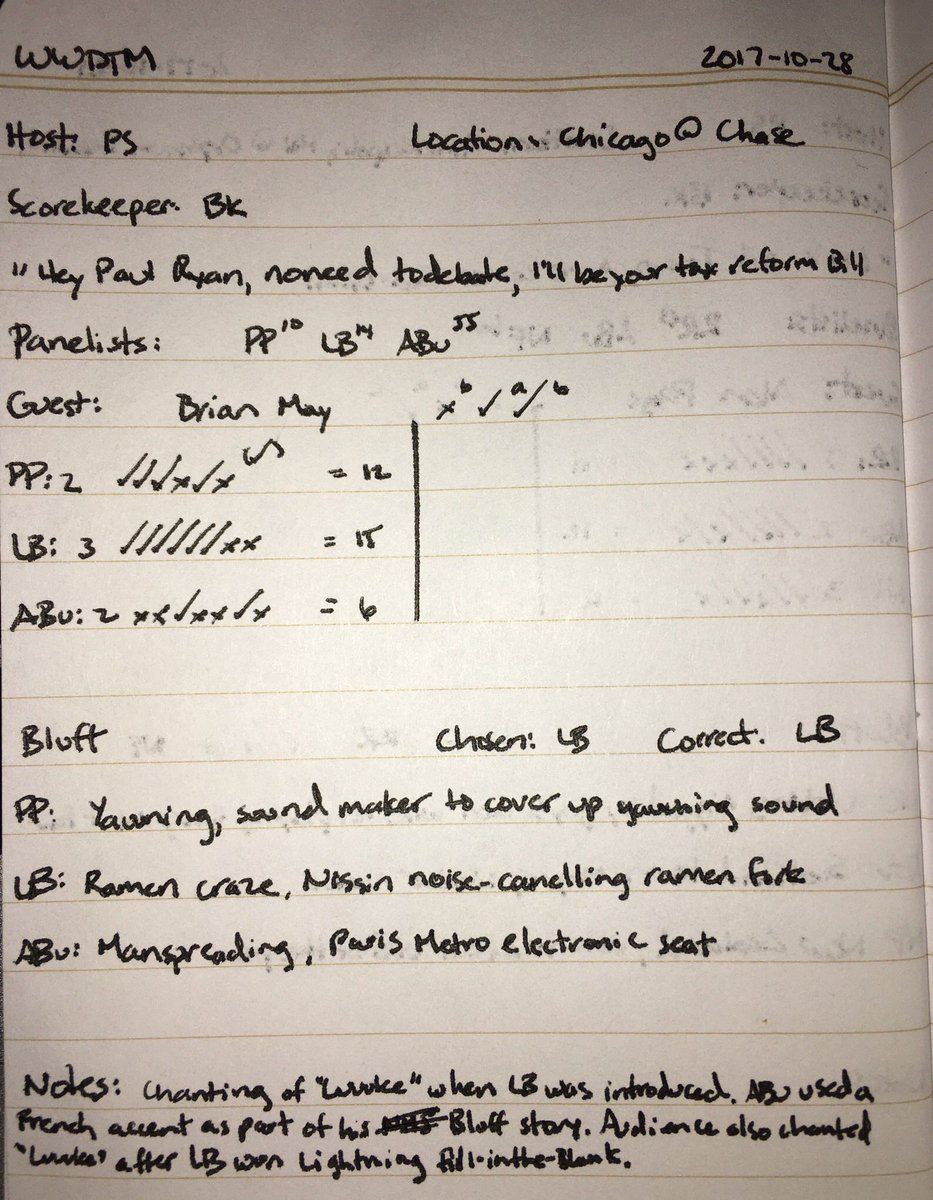 WWDTM 2017-10-28
Host: PS Location: Chicago @ Chase
Scorekeeper: BK
"Hey Paul Ryan, no need to debate, I'll be your tax reform Bill
Panelists: PP LB ABu
Guest: Brian May x b ✓ a / b
PP: 2 ✓✓✓x✓x = 12
LB: 3 ✓✓✓✓✓✓xx = 15
ABu: 2 xx✓xx✓x = 6
Bluff Chosen: LB Correct: LB
PP: Yawning, sound maker to cover up yawning sound
LB: Ramen craze, Nissin noise-canelling ramen fork
ABu: Manspreading, Paris Metro electronic seat
Notes: Chanting of "Luuuke" when LB was introduced. ABu used a
French accent as part of his Bluff story. Audience also chanted
"Luuuke" after LB won Lightning Fill-in-the-Blank.